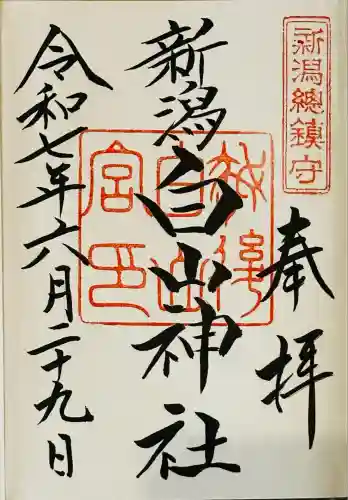 新潟總鎮守
奉拝
越後白山宮印
新潟白山神社
令和七年六月二十九日